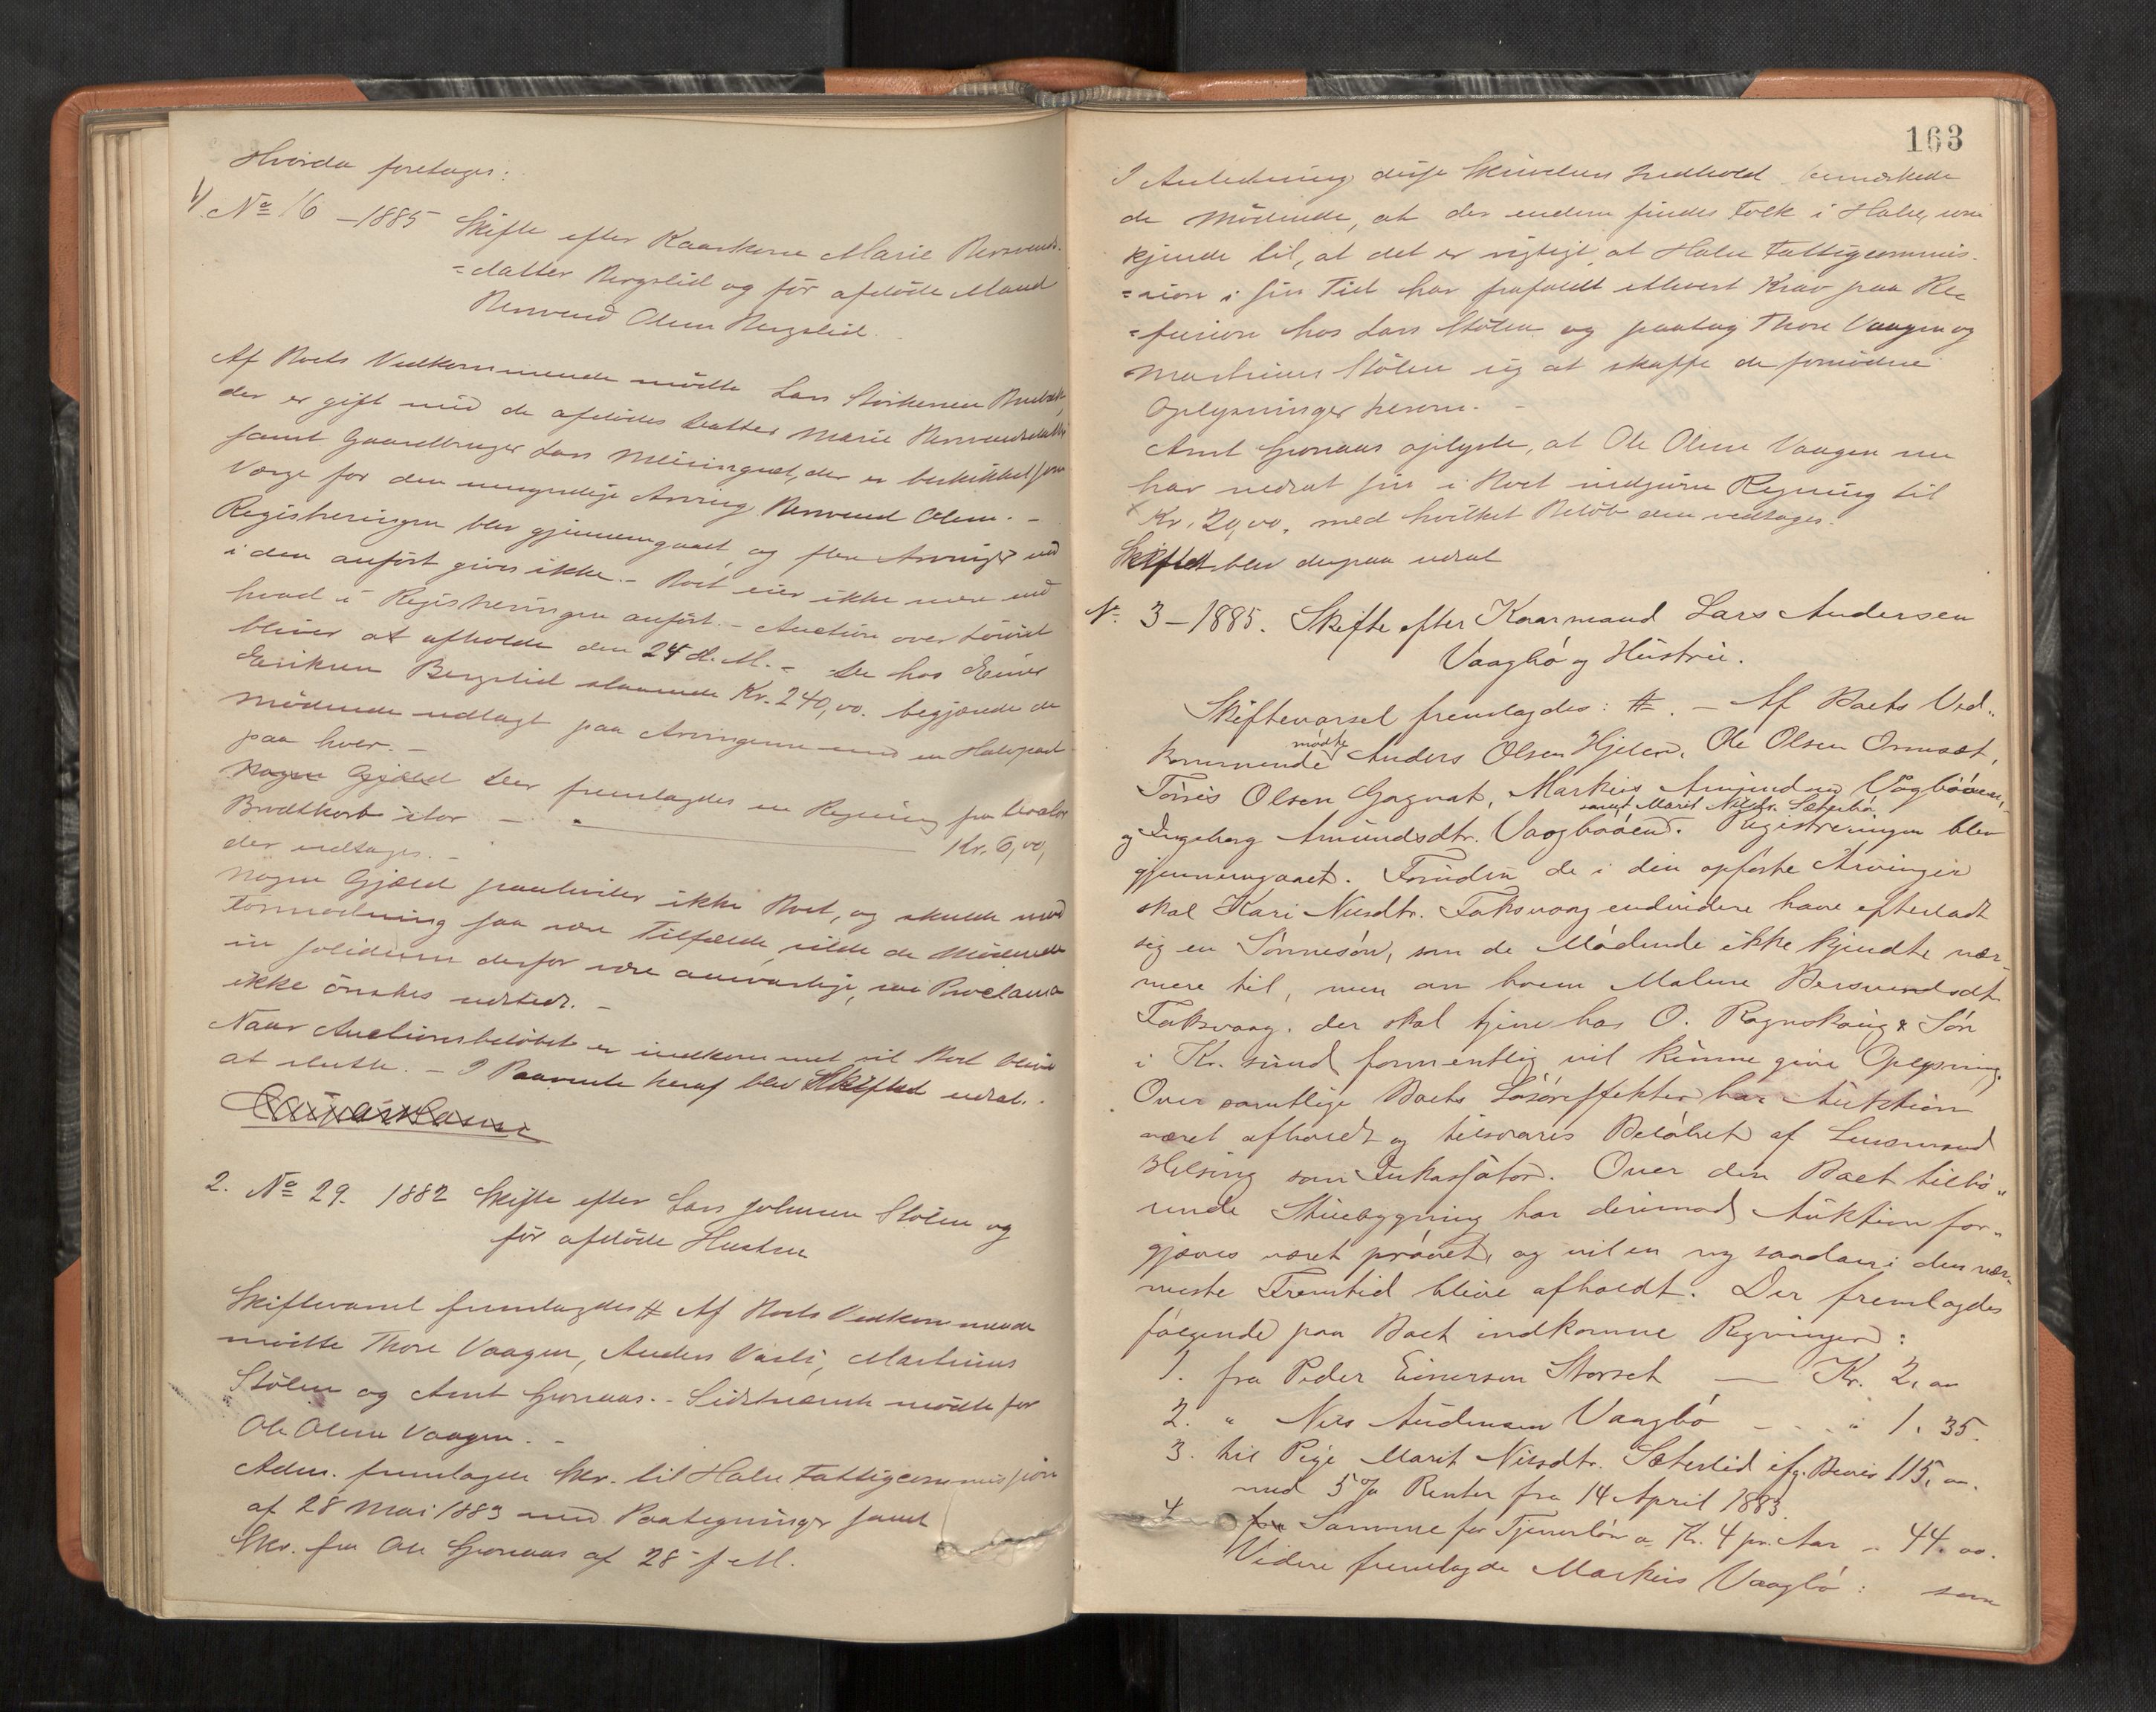 Hvorda foretages:
1/. No 16 – 1885 Skifte efter Kaarkone Marie Bersvends-
=datter Bergslid og før afdøde Mand
Bersvend Olsen Bergslid.
Af Boets Vedkommende mødte Lars Størkersen
der er gift med de afdødes Datter Marie Bersvendsdatter
samt Gaardbruger Lars der er beskikket som
Værge for den umyndige Arving Bersvend Olsen. –
Registreringen blev gjennemgaaet og flere Arvinger end
i den anført gives ikke. – Boet eier ikke mere end
hvad i Registreringen anført. – Auction over Løsøret
bliver at afholde den 24 d. M. – De hos Einer
Eriksen Bergslid staaende Kr. 240,00. begjærede de
Mødende udlagt paa Arvingerne med en Halvpart
paa hver. –
Nogen Gjæld Der fremlagdes en Regning fra Doctor
Brodtkorb stor – Kr. 6,00,
der vedtages. –
Nogen Gjæld paahviler ikke Boet, og skulde mod
Formodning saa være Tilfælde vilde de Mødende
in solidum derfor være ansvarlige, saa Proclama
ikke ønskes udstedt. –
Naar Auctionsbeløbet er indkommet vil Boet blive
at slutte. – I Paavente heraf blev Skiftet udsat.
2. No 29. 1882 Skifte efter Lars Johnsen Stølen og
før afdøde Hustru
Skiftevarsel fremlagdes # Af Boets Vedkommende
mødte Thore Vaagen, Anders Vasli, Martinus
Stølen og Arnt Gronaas. – Sidstnævnte mødte for
Ole Olsen Vaagen. –
Adm. fremlagde Skr. til Halse Fattigcommission
af 28 Mai 1883 med Paategninger samt
Skr. fra Ole Gronaas af 28 f. M.
163
I Anledning disse Skrivelsers Indhold bemærkede
de Mødende, at der endnu findes Folk i Halse, som
kjende til, at det er rigtigt at Halse Fattigcommis-
=sion i sin Tid har frafaldt ethvert Krav paa Re-
=fusion hos Lars Stølen og paatog Thore Vaagen og
Martinus Stølen sig at skaffe de fornødne
Oplysninger herom. –
Arnt Gronaas oplyste, at Ole Olsen Vaagen nu
har nedsat sin i Boet indgivne Regning til
Kr. 20,00. med hvilket Beløb den vedtages.
Skiftet blev derpaa udsat
No. 3 – 1885. Skifte efter Kaarmand Lars Andersen
Vaagbø og Hustru.
Skiftevarsel fremlagdes: #. – Af Boets Ved-
kommende mødte Anders Olsen Hjelen, Ole Olsen Ormset,
Tørris Olsen Gagnat, Markus Amundsen Vågbøøen,
og Ingeborg Amundsdtr. Vaagbøøen samt Marit Nilsdtr. Sæterbø. Registreringen blev
gjennemgaaet. Foruden de i den opførte Arvinger
skal Kari Nilsdtr. Faksvaag endvidere have efterladt
sig en Sønnesøn, som de Mødende ikke kjendte nær-
mere til, men om hvem Malene Bersvendsdt.
Faksvaag, der skal tjene hos O. Rognskaug & Søn
i Kr.sund formentlig vil kunne give Oplysning.
Over samtlige Boets Løsøreffekter har Auktion
været afholdt og tilsvares Beløbet af Lensmand
Helsing som Inkassator. Over den Boet tilhø-
rende Stuebygning har derimod Auktion for-
gjæves været prøvet, og vil en ny saadan i den nær-
meste Fremtid blive afholdt. Der fremlagdes
følgende paa Boet indkomne Regninger:
1. fra Peder Einersen Storset — Kr. 2,00
2. " Nils Andersen Vaagbø – – " 1,35.
3. til Pige Marit Nilsdtr. Sæterlid ifg. Bevis 115,00.
med 5% Renter fra 14 April 1883.
4. fra Samme for Tjenerløn a Kr. 4 pr. Aar – 44.00.
Videre fremlagde Markus Vaagbø: som